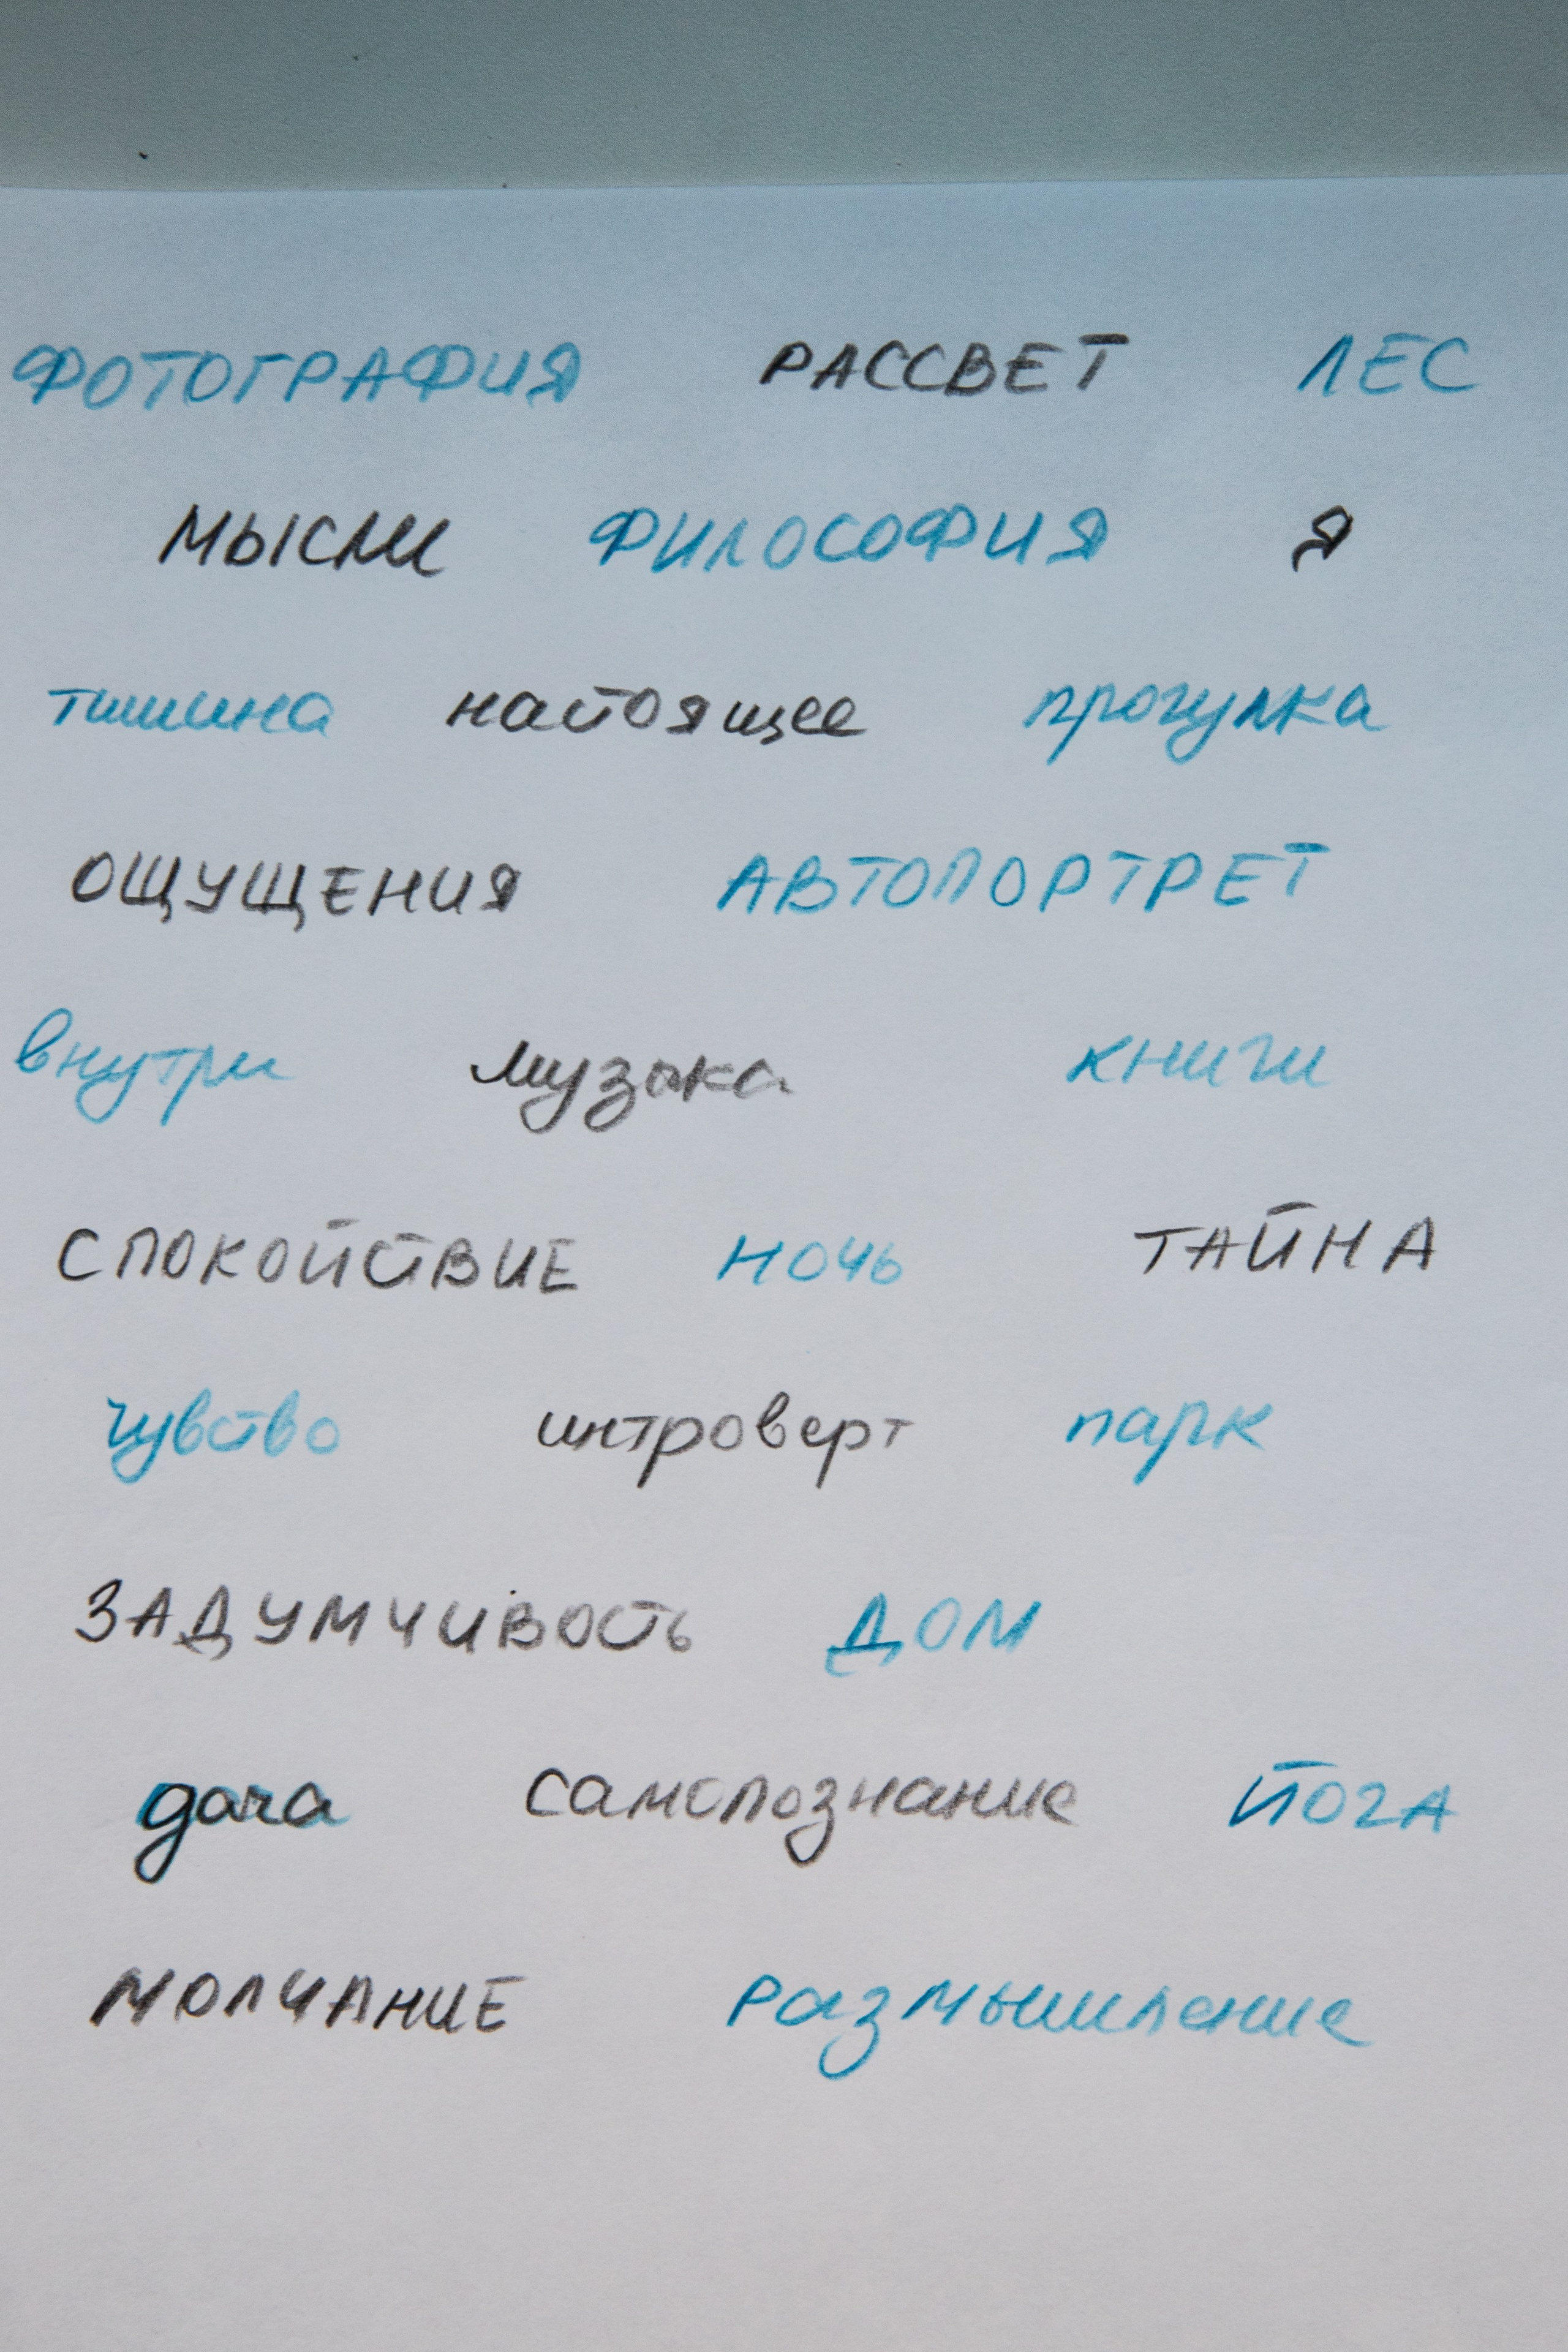 ФОТОГРАФИЯ РАССВЕТ ЛЕС
МЫСЛИ ФИЛОСОФИЯ Я
тишина настоящее прогулка
ОЩУЩЕНИЯ АВТОПОРТРЕТ
внутри музыка книги
СПОКОЙСТВИЕ НОЧЬ ТАЙНА
чувство интроверт парк
ЗАДУМЧИВОСТЬ ДОМ
дача самопознание ЙОГА
МОЛЧАНИЕ размышление